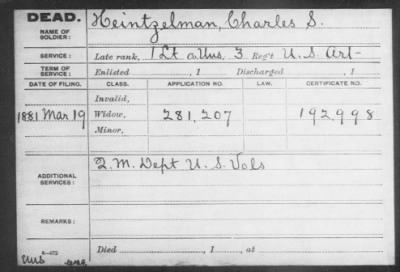 DEAD.
NAME OF SOLDIER:
Heintzelman, Charles S.
SERVICE:
Late rank, 1 Lt Co. Uns, 3 Reg't U. S. Art-
TERM OF SERVICE:
Enlisted , 1 Discharged , 1
DATE OF FILING. CLASS. APPLICATION NO. LAW. CERTIFICATE NO.
Invalid,
1881 Mar 19 Widow, 281,207 192,998
Minor,
ADDITIONAL SERVICES:
Q. M. Dept U. S. Vols
REMARKS:
Died , 1 , at